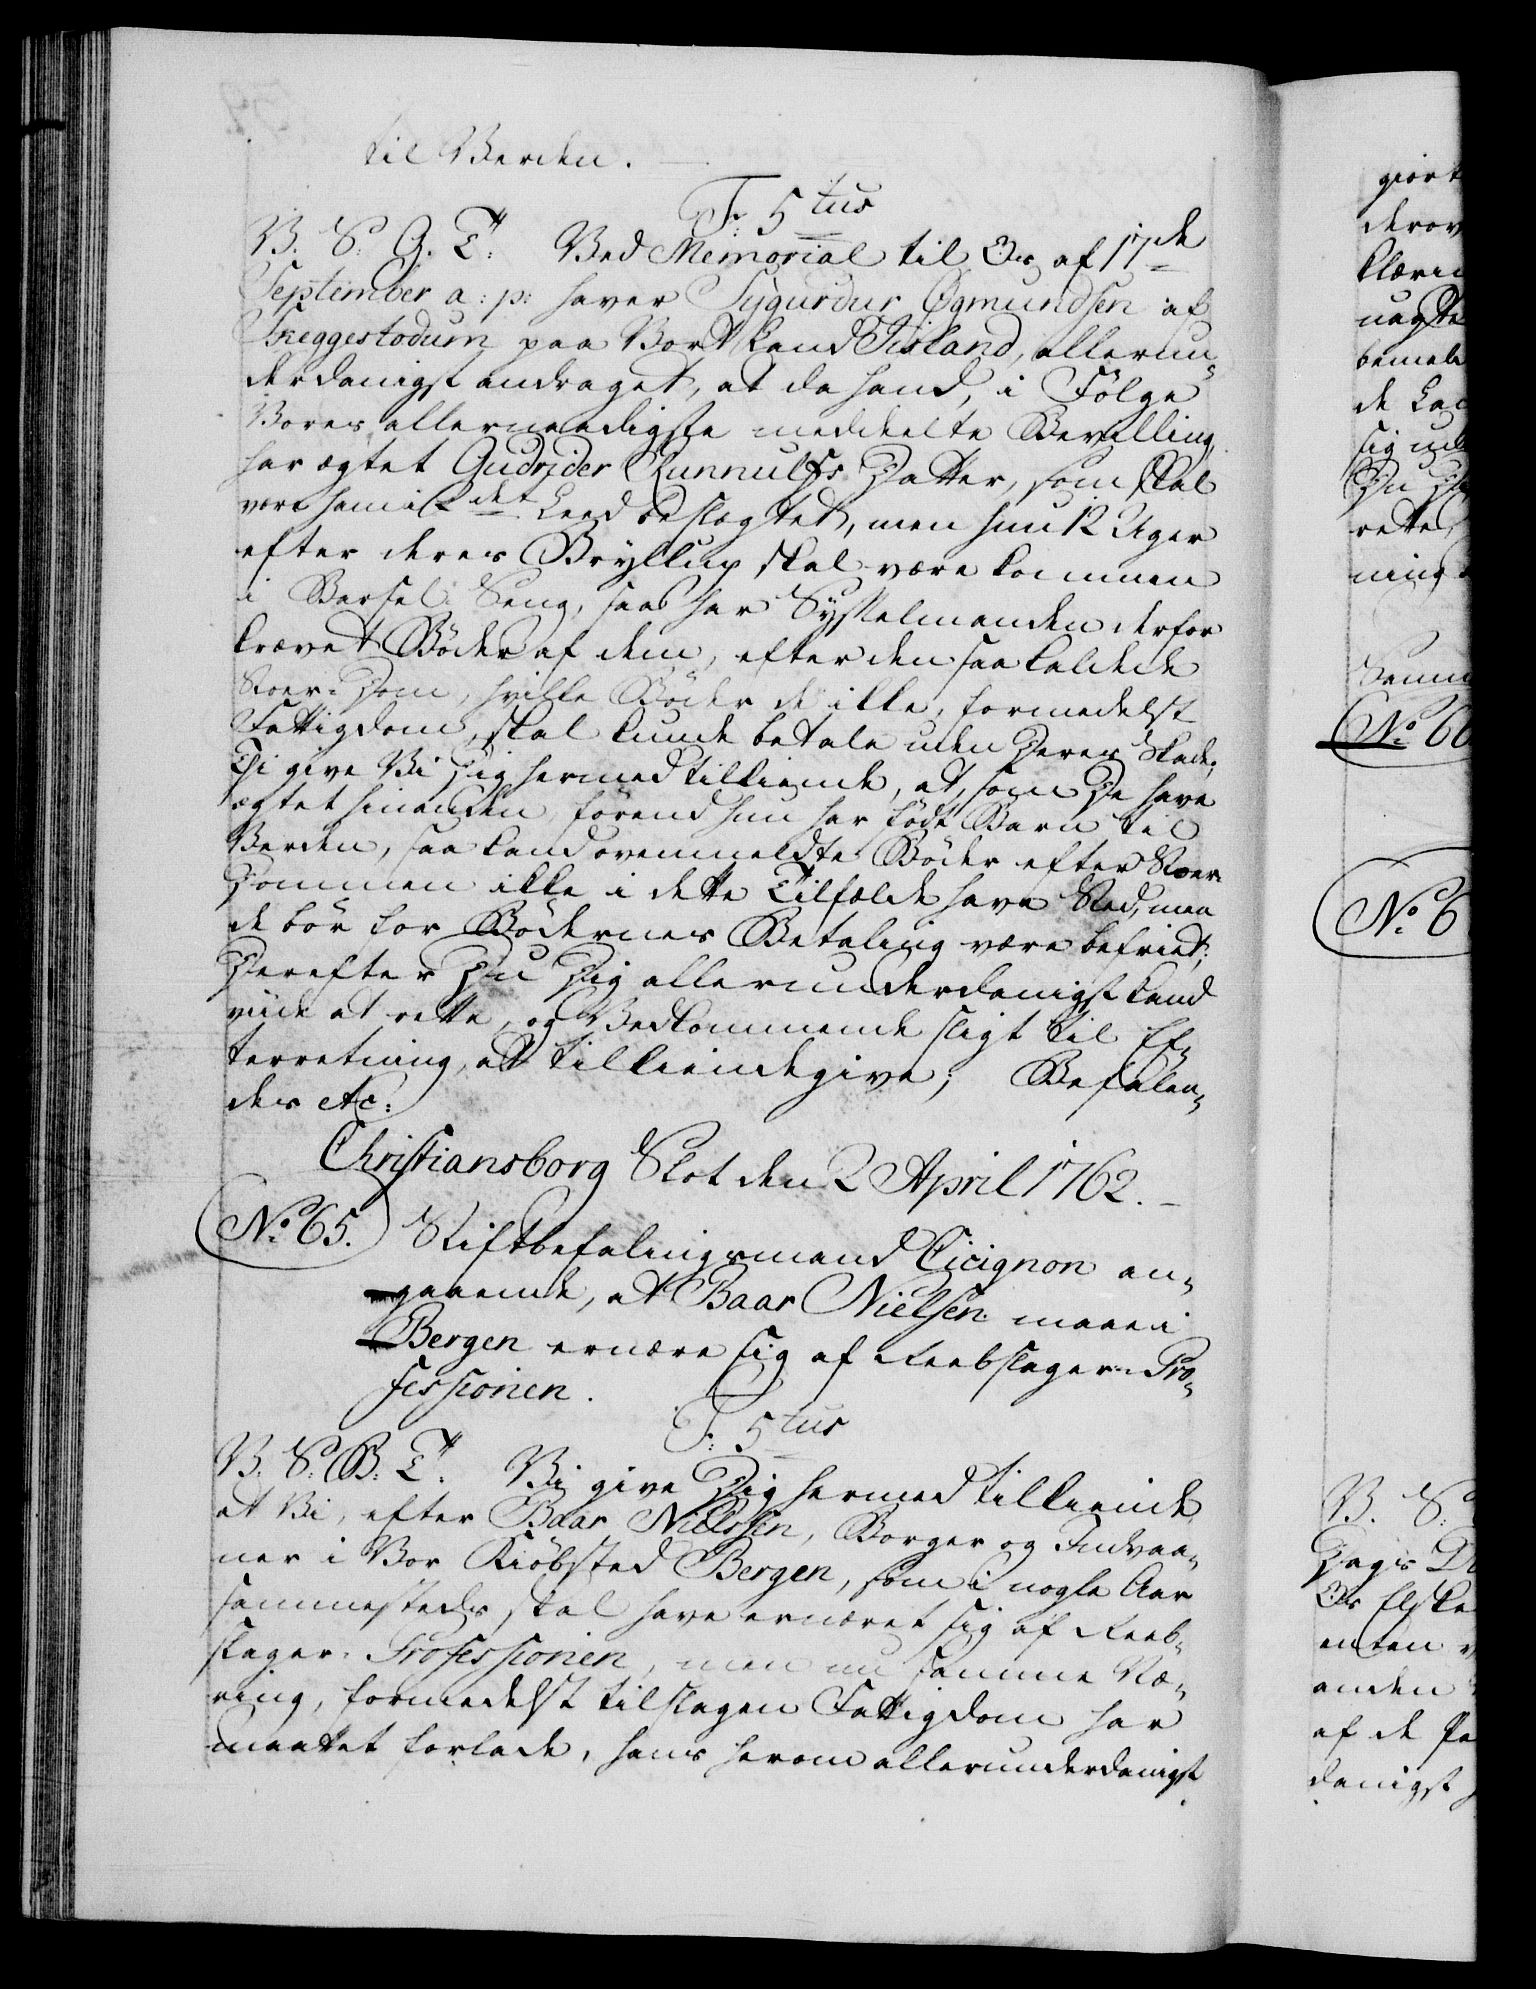 til Verden.
F: 5tus
V. S. G. T. Ved Memorial til Os af 17de
September a: p: haver Sygurdur Øgmundsen af
Skeggestodum paa Vort Land Jisland, allerun-
derdanigst andraget, at da hand, i Følge
Vores allernaadigste meddeelte Bevilling,
har ægtet Gudrider Runnulfs Datter, som skal
være ham i 2det Leed beslægtet, men hun 12 Uger
efter deres Bryllup skal være kommen
i Barsel-Seng, saa har Sysselmanden derfor
krævet Bøder af dem, efter den saa kaldede
Stoer-Dom, hvilke Bøder de ikke, formedelst
Fattigdom, skal kunde betale uden Deres Skade;
Thi give Vi Dig hermed tilkiende, at, som De have
ægtet hinanden, førend hun har født Barn til
Verden, saa kand ovenmeldte Bøder efter Stoer-
Dommen ikke i dette Tilfælde have Sted, men
de bør for Bødernes Betaling være befriet;
Derefter Du Dig allerunderdanigst kand
viide at rette, og Vedkommende sligt til Ef-
terretning, at tilkiendegive; Befalen-
des etc:
Christiansborg Slot den 2 April 1762.
No. 65. Stiftbefalingsmand Cicignon an-
gaaende, at Baar Nielsen maae i
Bergen ernære sig af Reebslager-Pro-
fessionen.
F: 5tus
V. S. B. T. Vi give Dig hermed tilkiende
at Vi, efter Baar Nielssen, Borger og Indvaa-
ner i Vor Kiøbsted Bergen, som i nogle Aar
sammesteds skal have ernæret sig af Reeb-
slager-Professionen, men nu samme Næ-
ring, formedelst tilslagen Fattigdom har
maattet forlade, hans herom allerunderdanigst
No. 66
No. 6
V. S.